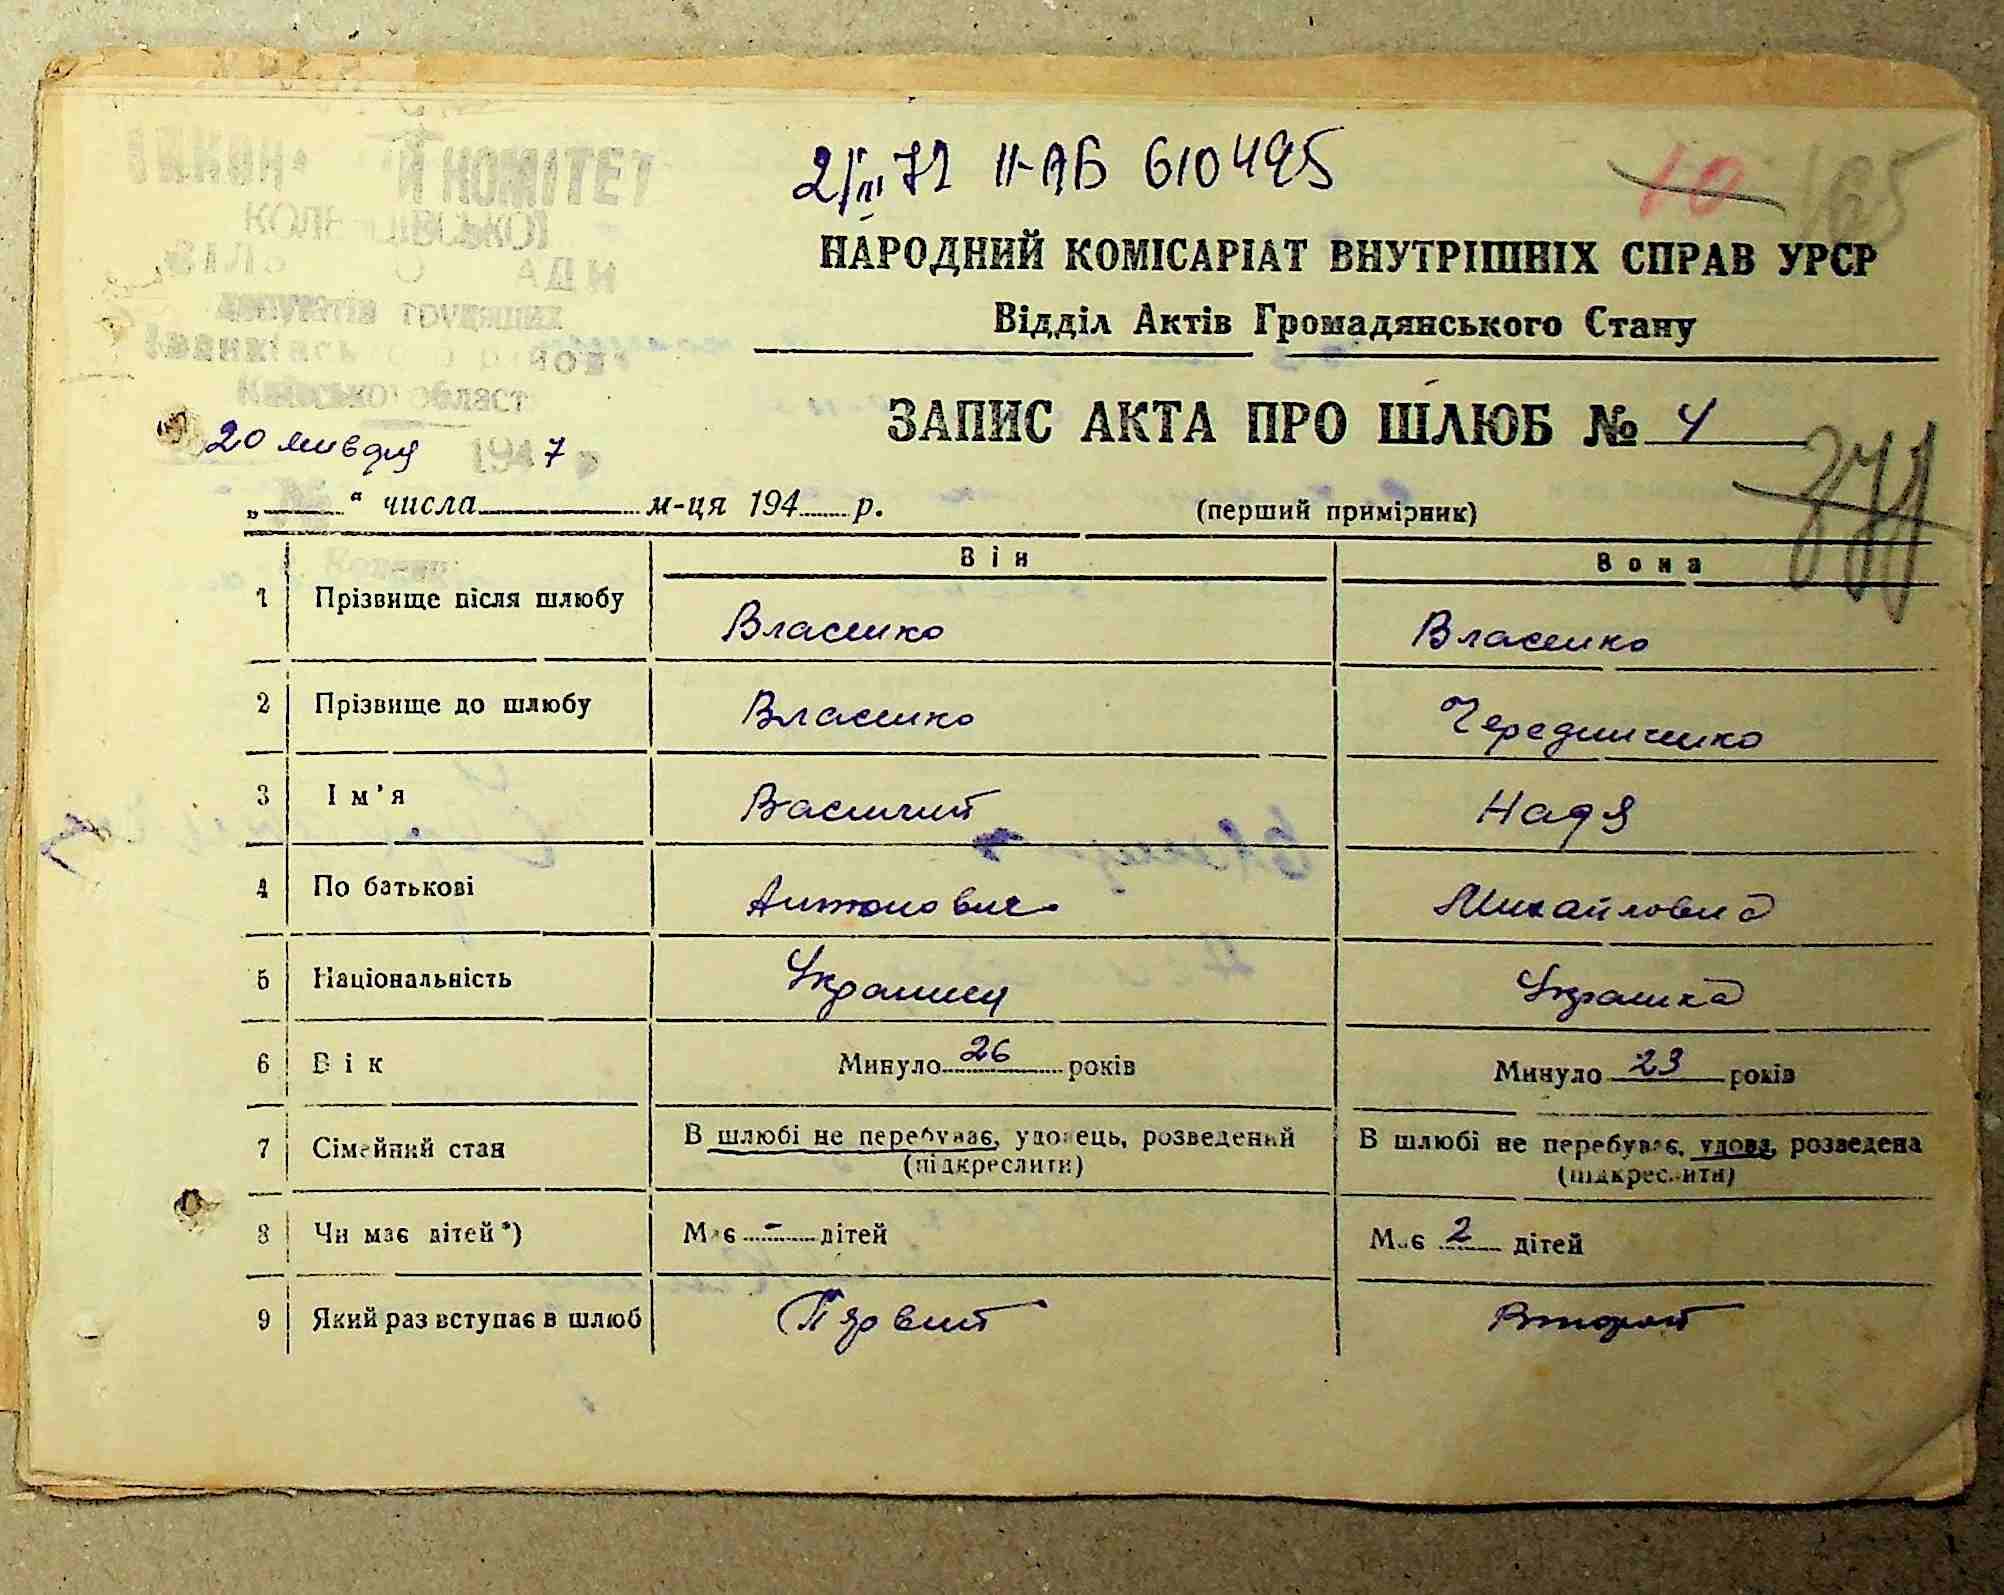 2/III 72 II-АБ 610495
10 165
НОМІТЕТ
НАРОДНИЙ КОМІСАРІАТ ВНУТРІШНІХ СПРАВ УРСР
Відділ Актів Громадянського Стану
депутатів трудящих
ЗАПИС АКТА ПРО ШЛЮБ № 4
20 января 1947 р
„ “ числа м-ця 194 р.
(перший примірник)
Він Вона
1 Прізвище після шлюбу Власенко Власенко
2 Прізвище до шлюбу Власенко Чередниченко
3 Ім'я Василий Надя
4 По батькові Антонович Михайловна
5 Національність Украинец Украинка
6 Вік Минуло 26 років Минуло 23 років
7 Сімейний стан В шлюбі не перебуває, удовець, розведений (підкреслити) В шлюбі не перебуває, удова, розведена (підкреслити)
8 Чи має дітей*) Має - дітей Має 2 дітей
9 Який раз вступає в шлюб Первий Второй